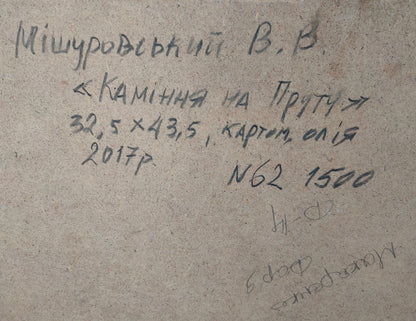 Мішуровський В. В.
«Каміння на Пруту»
32,5×43,5, картон, олія
2017р.
N62 1500
Ф-Ц